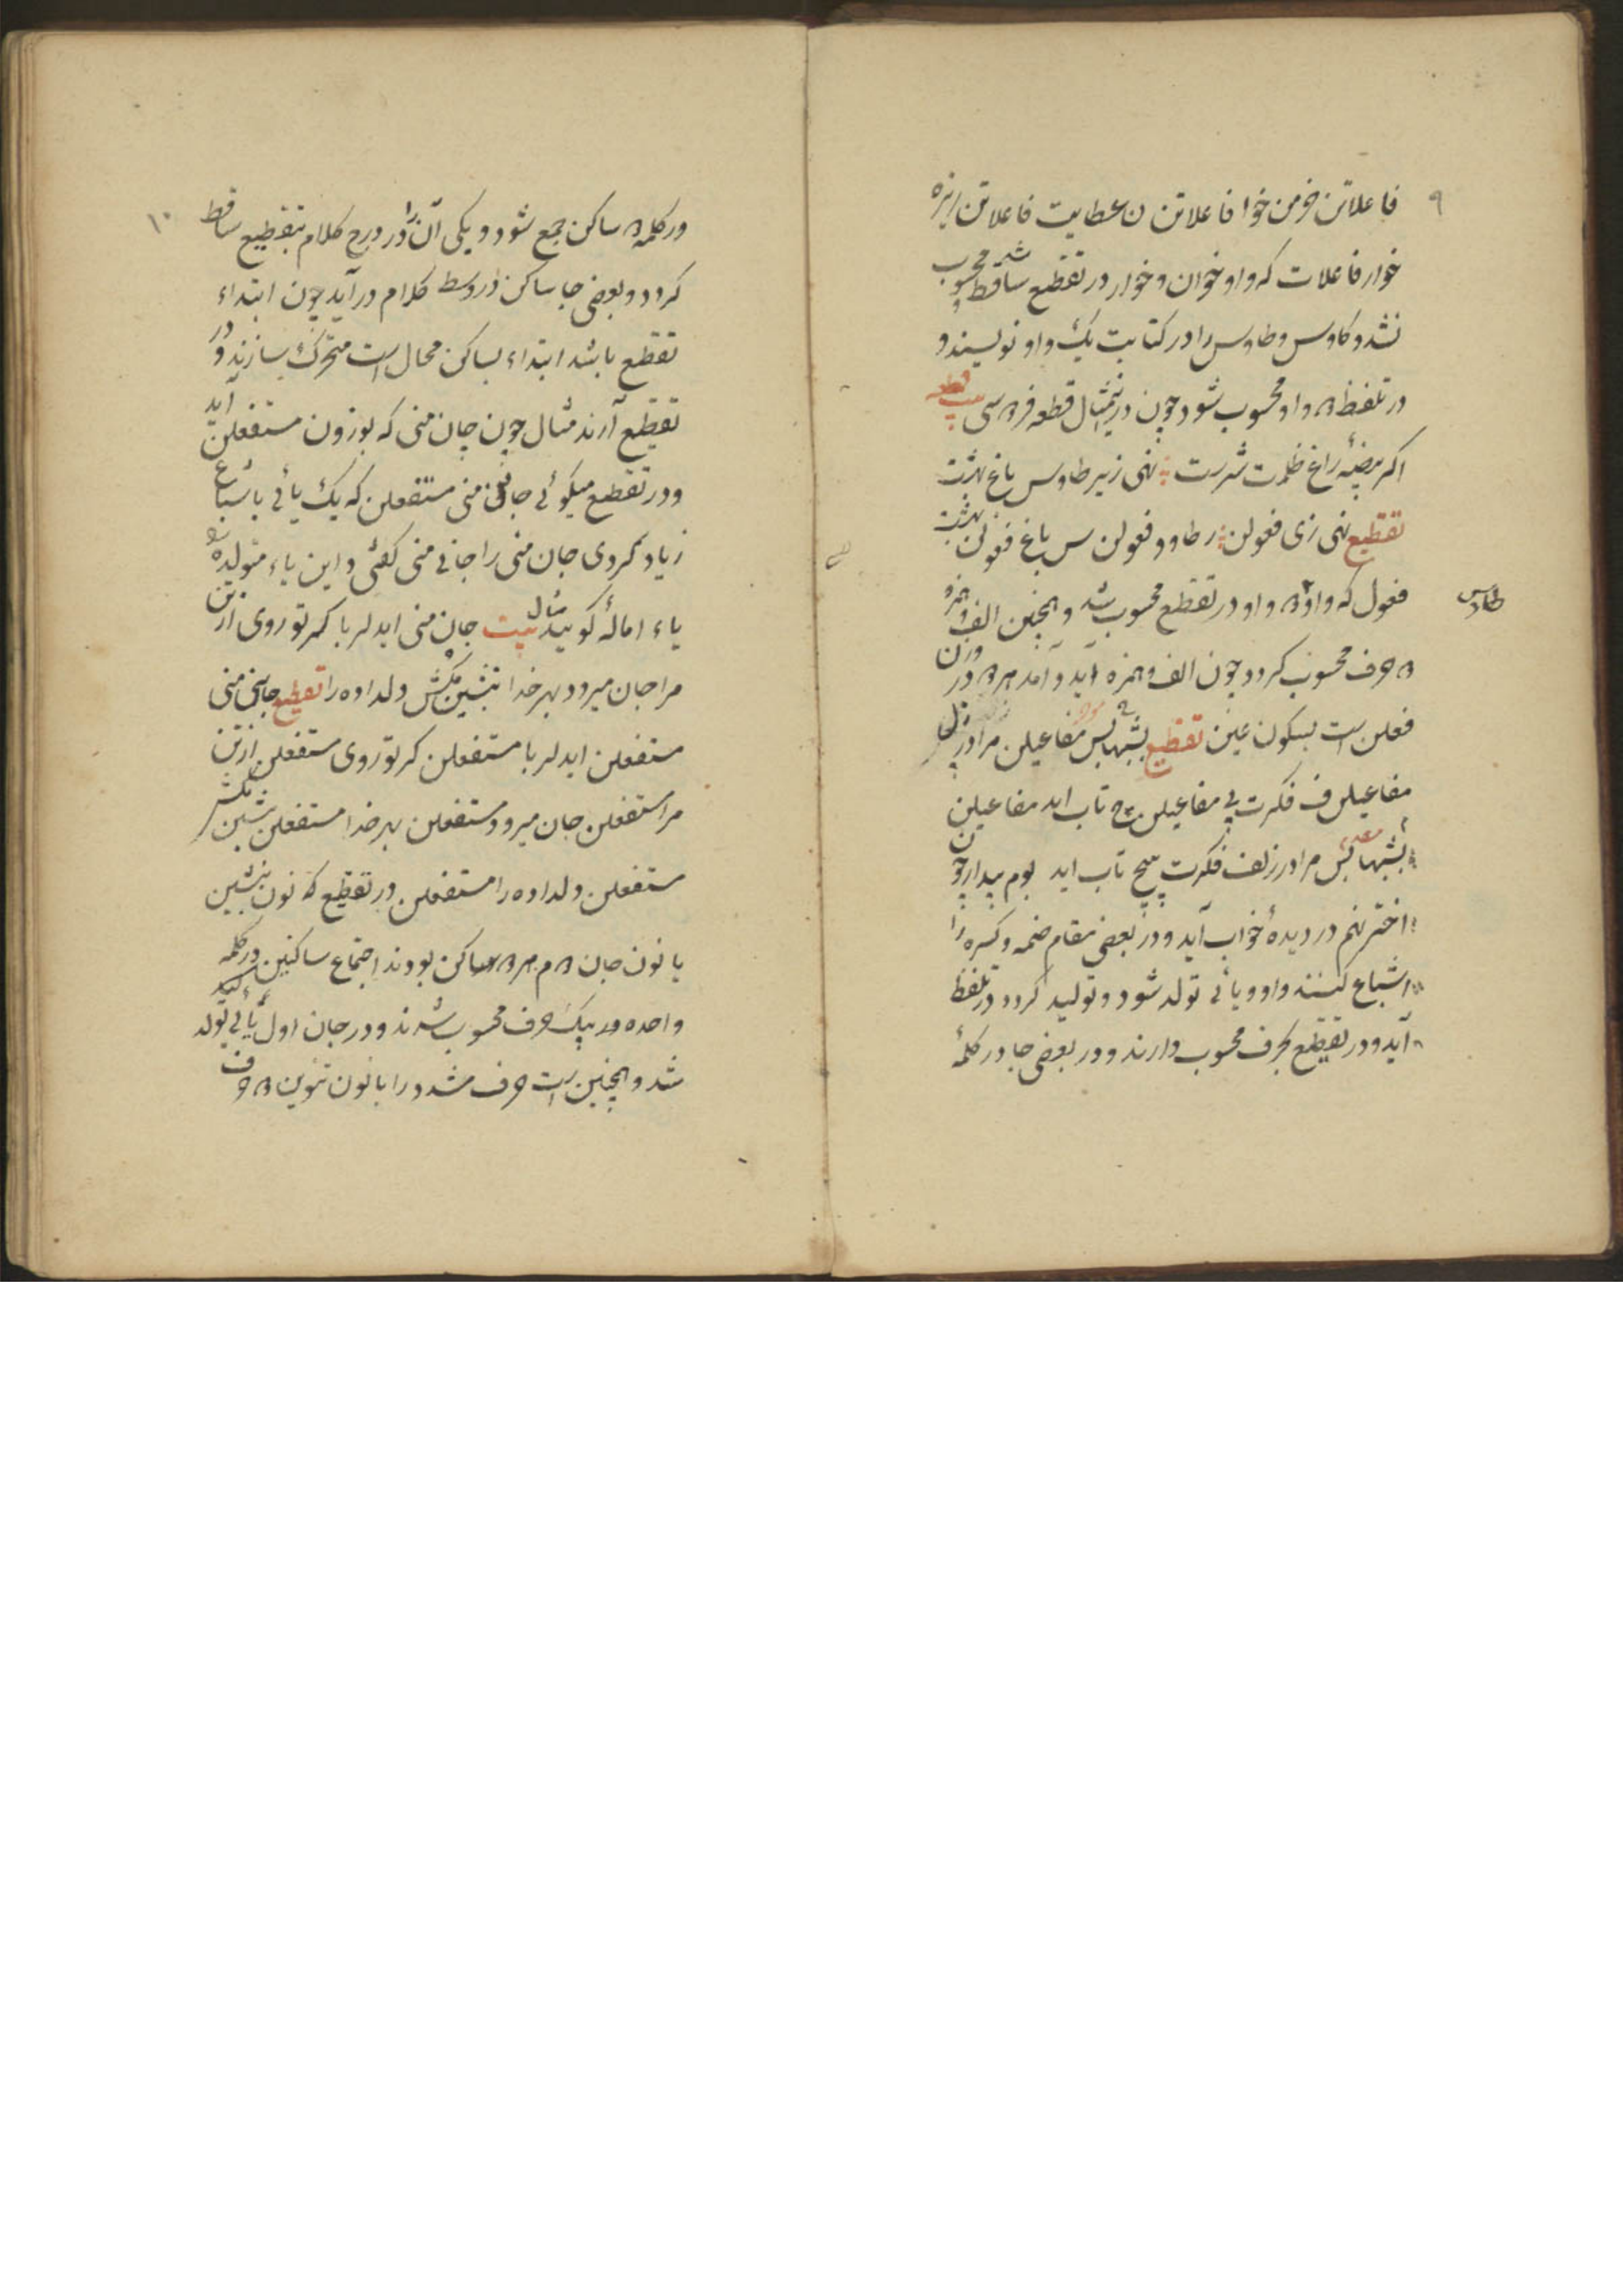 ۹
فاعلاتن خرمن خوا فاعلاتن ن عطایت فاعلاتن ریزه
خوار فاعلات که واو خوان و خوار در تقطیع ساقط شد محسوب
نشد و کاوس و طاوس را در کتابت یک واو نویسند و
در تلفظ واو محسوب شود چون در تمثال قطعه
اکر بیضهٔ زاغ ظلمت سرشت نهی زیر طاوس باغ بهشت
تقطیع نهی زی فعولن ر طاوو فعولن س باغ فعولن بهشت
فعول که واو واو در تقطیع محسوب شد و همچنین الف و همزه
طاوس
حرف محسوب کردد چون الف و همزه آید و آمد در وزن
فعلن است بسکون عین تقطیع بشبها بس مفاعیلن مرا در زل
مفاعیلن ف فکرت پی مفاعیلن تاب اید مفاعیلن
بشبها بس مرا در زلف فکرت پیچ تاب اید بوم بیدار چون
اختر نهم در دیدهٔ خواب آید و در بعضی مقام ضمه و کسره را
اشباع کنند واو و یائی تولد شود و تولید کردد در تلفظ
آید و در تقطیع بحرف محسوب دارند و در بعضی جا در کلمهٔ
۱۰
در کلمه ساکن جمع شود و یکی آن را در درج کلام بتقطیع ساقط
کردد و بعضی جا ساکن در وسط کلام در آید چون ابتداء
تقطع باشد ابتداء بساکن محال است متحرک بسازند و در
تقطیع آرند مثال چون جان منی که بوزون مستفعلن آید
و در تقطیع میکوئی جانی منی مستفعلن که یک یائی باشباع
زیاد کردی جان منی را جانی منی کفتی و این یاء متولده
یاء امالهٔ کویند مثال بیت جان منی ایدلربا کر تو روی از تن
مرا جان میرود بهر خدا بنشین مکش دلداده را تقطیع جانی منی
مستفعلن ایدلربا مستفعلن کر تو روی مستفعلن از تن
مرا مستفعلن جان میرود مستفعلن بهر خدا مستفعلن بنشین مکش
مستفعلن دلداده را مستفعلن در تقطیع که نون بنشین
با نون جان ساکن بودند اجتماع ساکنین در کلمه
واحده بیک حرف محسوب شدند و در جان اول یائی تولد
شد و همچنین است حرف مشدد را با نون تنوین حرف